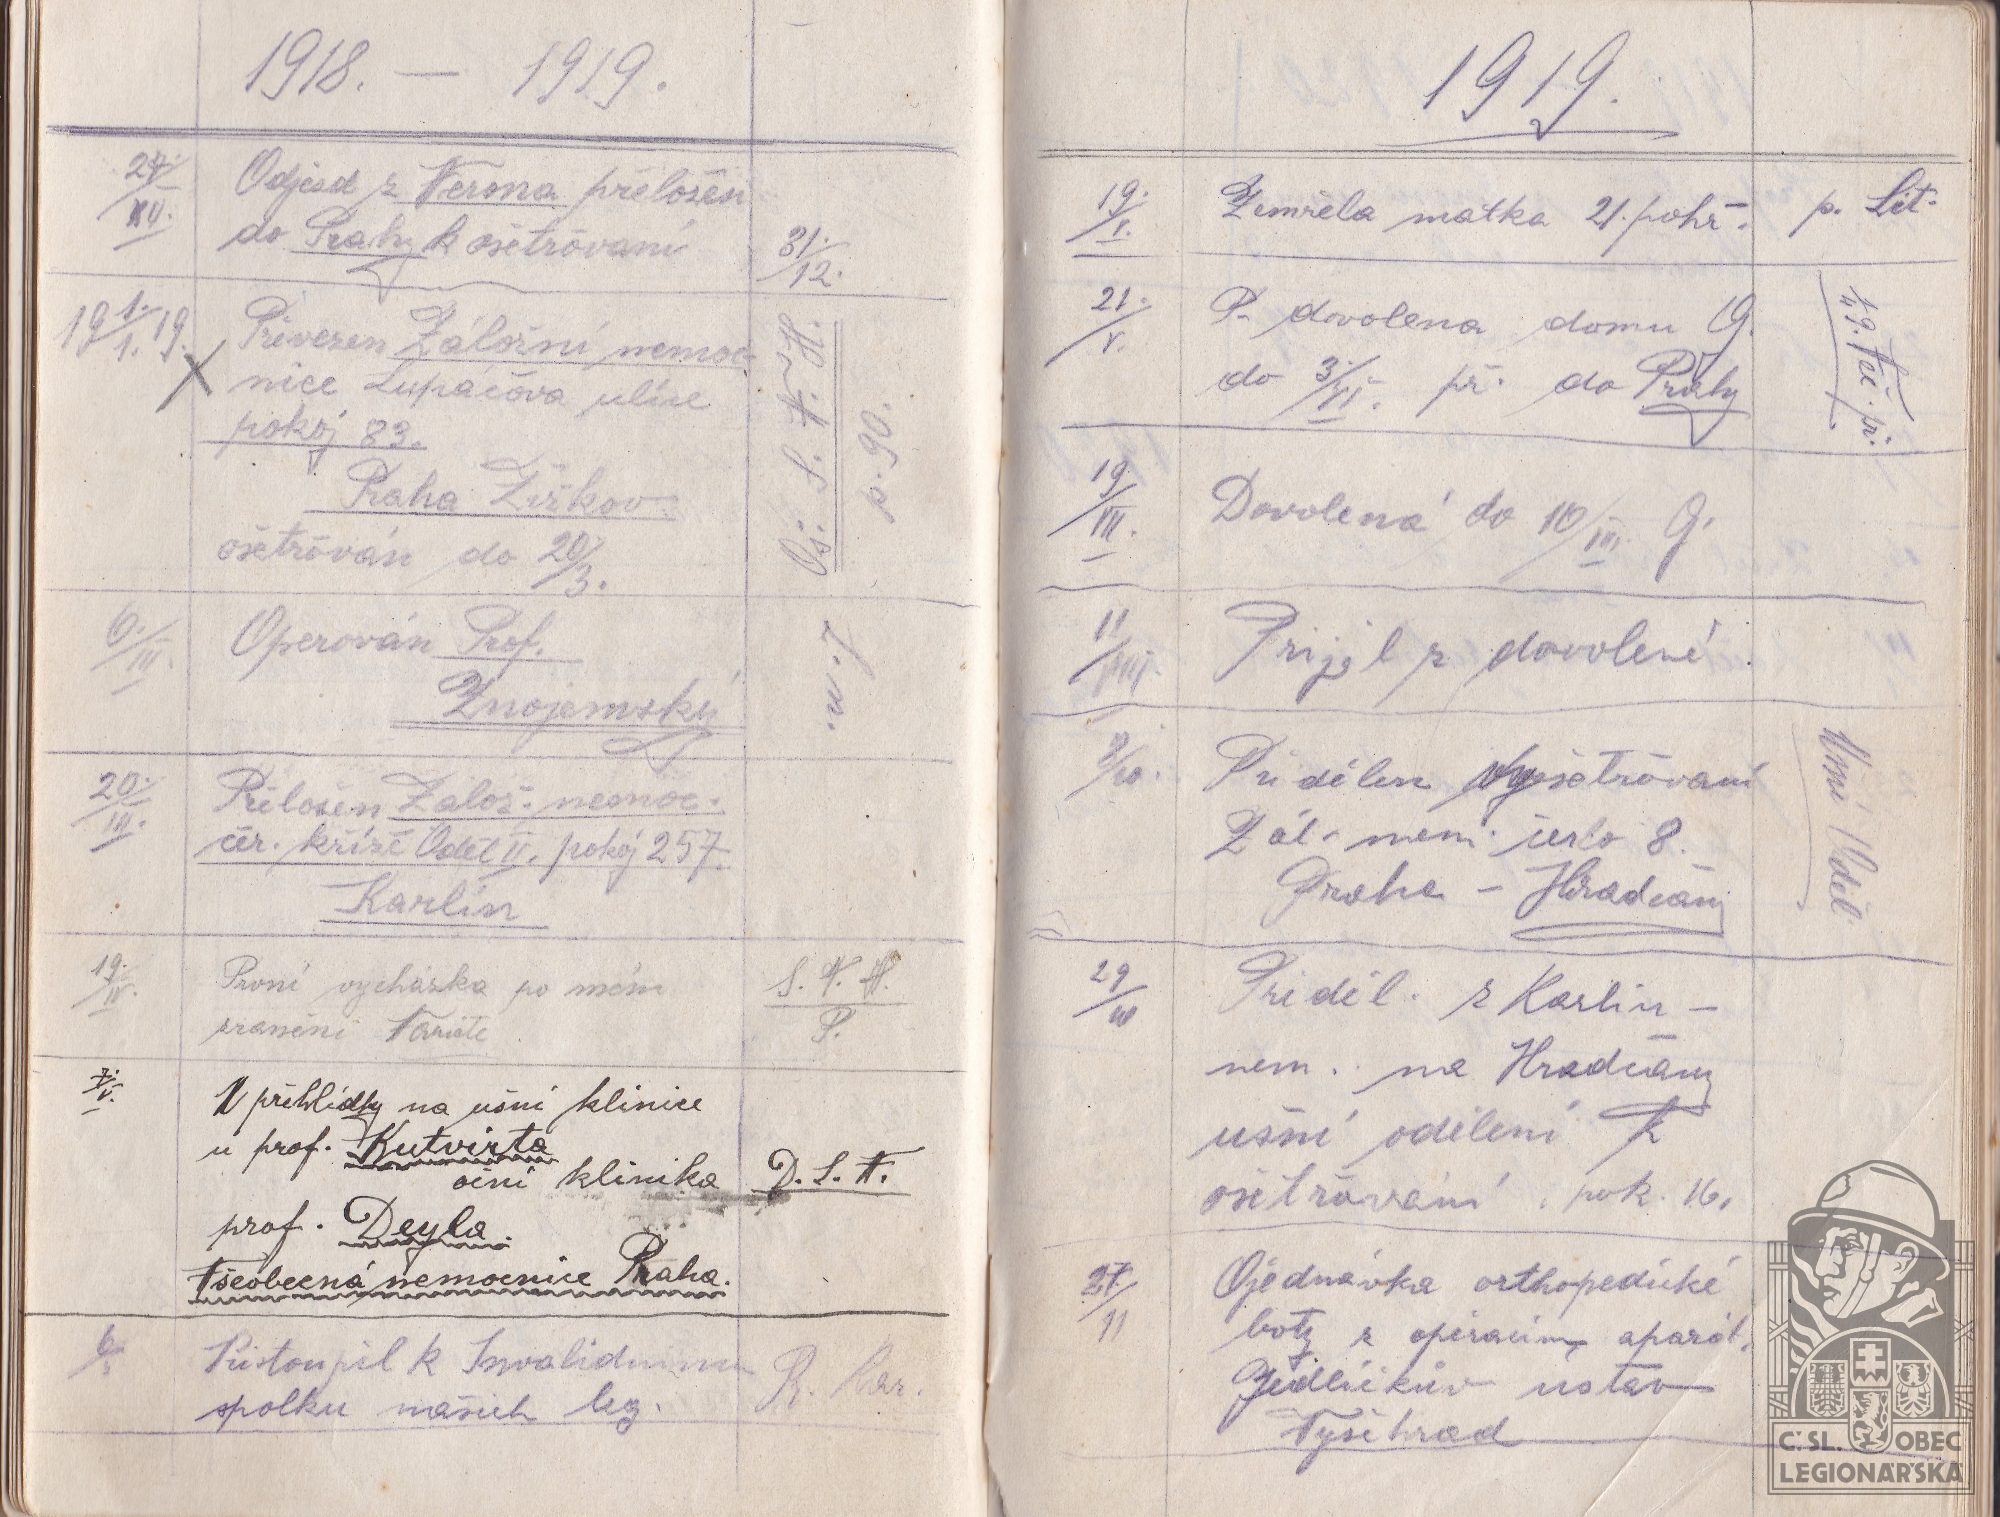 1918. — 1919.
27./XII. Odjezd z Verona přeložen
do Prahy k ošetřování 31./12.
19 1./1. 19. Převezen Záložní nemoc-
nice Lupáčova ulice
pokoj 83.
Praha Žižkov
ošetřován do 20/3.
Oš. S. V. H.
p. 90.
6./III. Operován Prof.
Znojemský
20./III. Přeložen Zálož. nemoc.
čer. kříže Oděl II. pokoj 257.
Karlín
19./IV. První vycházka po mém S. V. H.
zranění Variete P.
7./V. K přehlídky na ušní klinice
u prof. Kutvirta
oční klinika D. S. V.
prof. Deyla
Všeobecná nemocnice Praha.
Přistoupil k Invalidnimu
spolku našich leg.
1919.
19./V. Zemřela matka 21. pohř. p. Lit.
21./V. P. dovolena domu G.
do 3./VI. př. do Prahy
19/VII. Dovolená do 10/VIII. G.
11/VIII. Prijel z dovolené
9/10. Přidělen vyšetřování
Zál. nem. čislo 8.
Praha – Hradčany
Ušní Oděl
29/10 Přiděl. z Karlin –
nem. na Hradčany
ušní odělení k
ošetřování. pok. 16.
27/11 Ojednávka orthopedické
boty z operacim aparát.
Jedličkův ústav
Vyšehrad
Č. SL. OBEC
LEGIONÁŘSKÁ